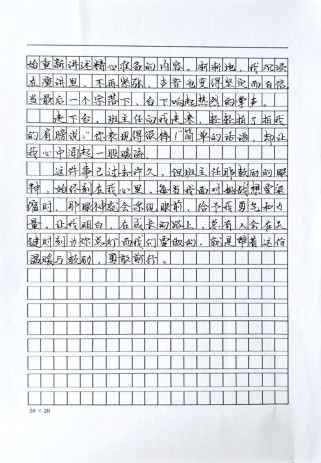 始重新讲述精心准备的内容。渐渐地，我沉浸
在演讲里，不再紧张，声音也变得坚定而自信
当最后一个字落下，台下响起热烈的掌声。
走下台，班主任向我走来，轻轻拍了拍我
的肩膀说："你表现得很棒！"简单的话语，却让
我心中涌起一股暖流.
这件事已过去许久，但班主任那鼓励的眼
神，始终刻在我心里。每当我面对挑战想要退
缩时，那眼神总会浮现眼前，给予我勇气和力
量。让我明白，在成长的路上，总有人会在关
键时刻为你点灯而我们要做的，就是带着这份
温暖与鼓励，勇敢前行。
20×20